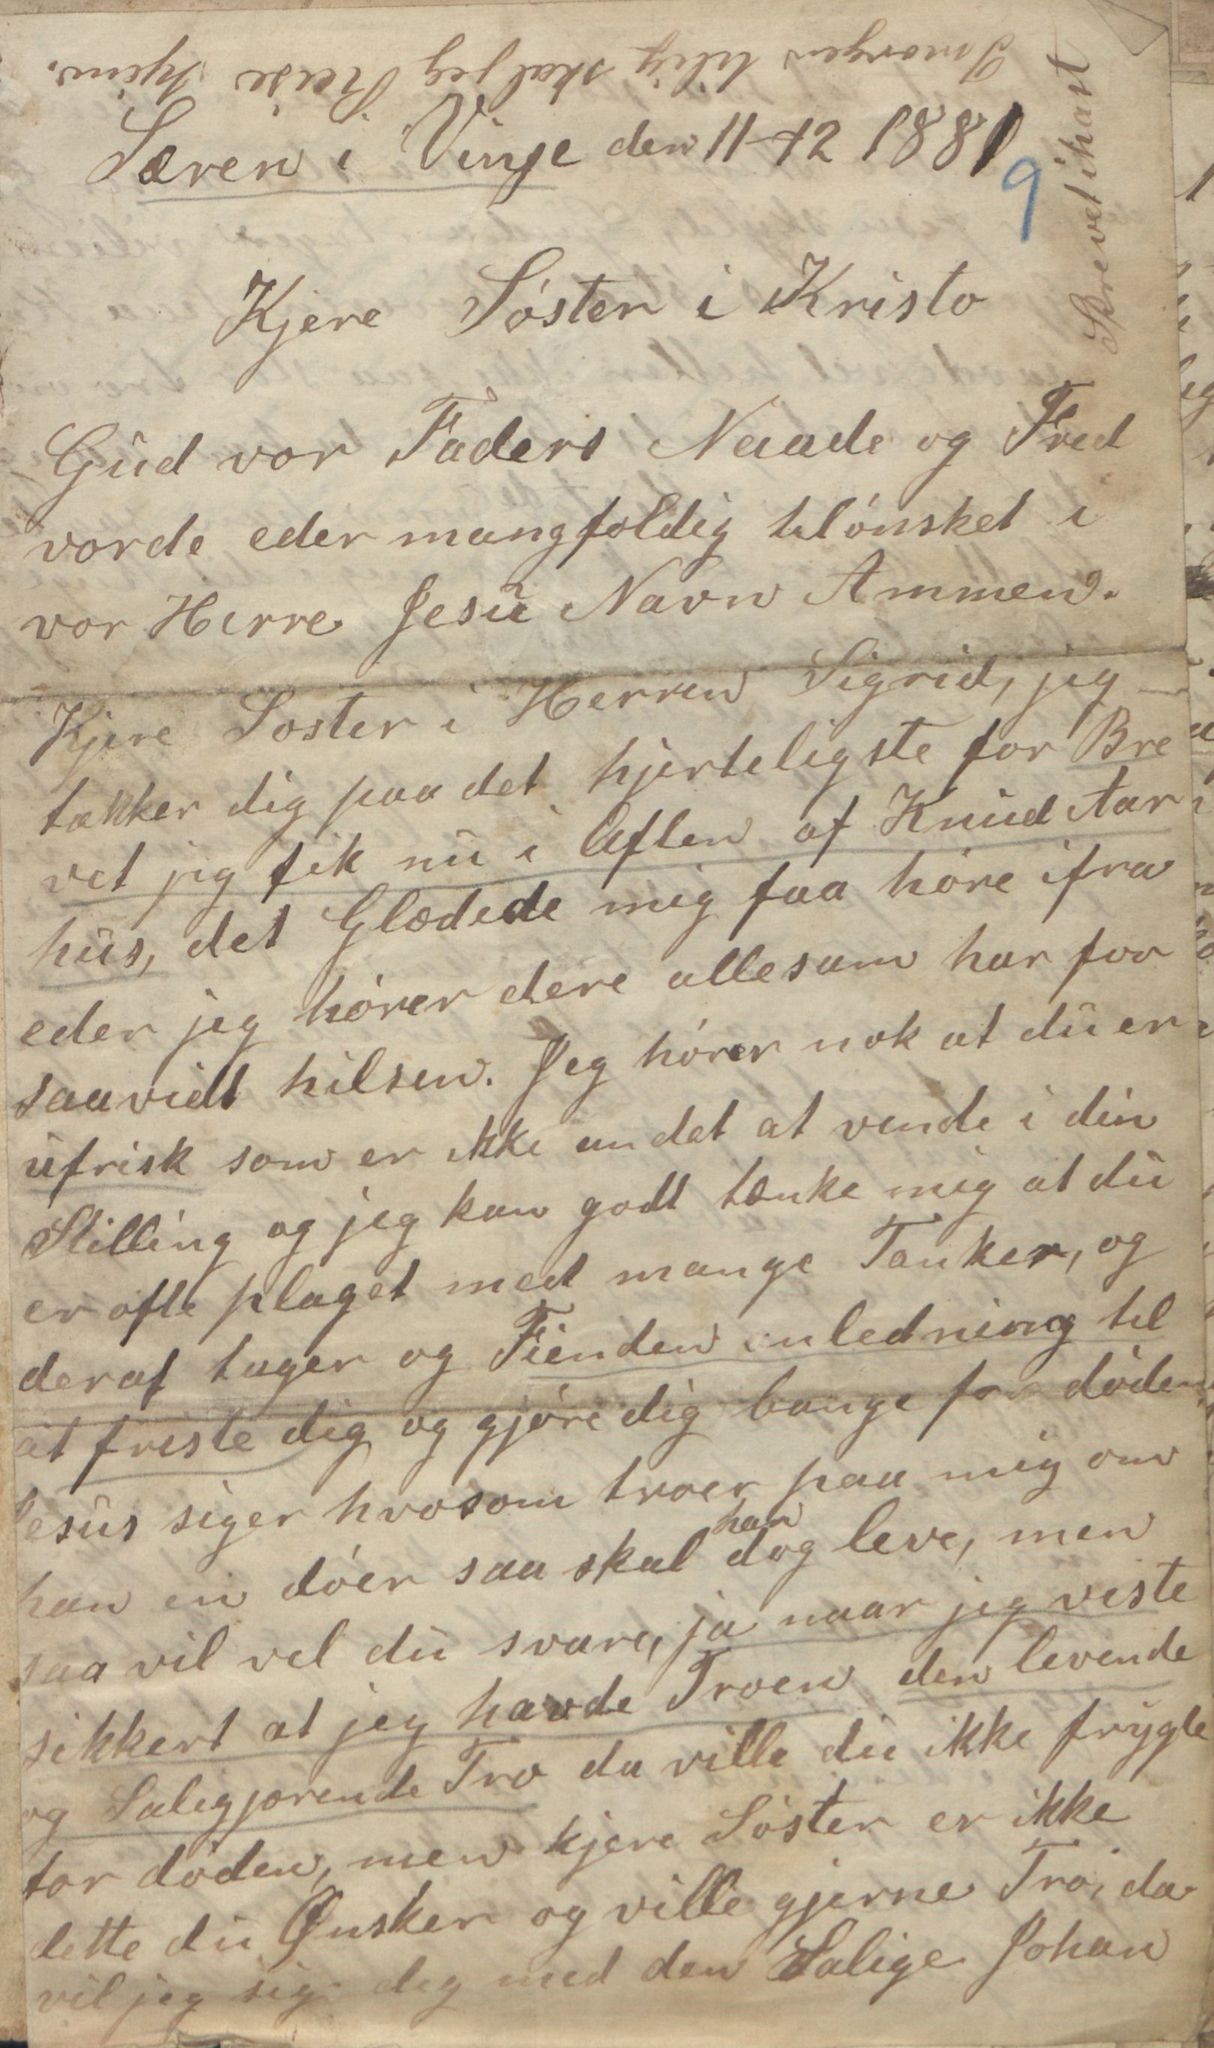 Imorgen tidlig skal jeg Reise hjem.
Særen i Vinje den 11-12 1881
9
Skrevet i hast
Kjere Søster i Kristo
Gud vor Faders Naade og Fred
vorde eder mangfoldig tilønsket i
vor Herre Jesu Navn Ammen.
Kjere Søster i Herren Sigrid, jeg
takker dig paa det hjerteligste for Bre
vet jeg fik nu i Aften af Knud Aar
hus, det Glædede mig faa høre ifra
eder jeg hører dere allesam har for
saavidt hilsen. Jeg hører nok at du er
ufrisk som er ikke andet at vende i din
Stilling og jeg kan godt tænke mig at du
er ofte plaget med mange Tanker, og
deraf tager og Fienden anledning til
at friste dig og gjøre dig bange for døden
Jesus siger hvosom troer paa mig om
han en døer saa skal han dog leve, men
saa vil vel du svare, ja naar jeg viste
sikkert at jeg havde Troen den levende
og Saligjørende Tro da ville du ikke frygte
for døden, men kjere Søster er ikke
dette du Ønsker og ville gjerne Tro, da
vil jeg sige dig med den Salige Johan